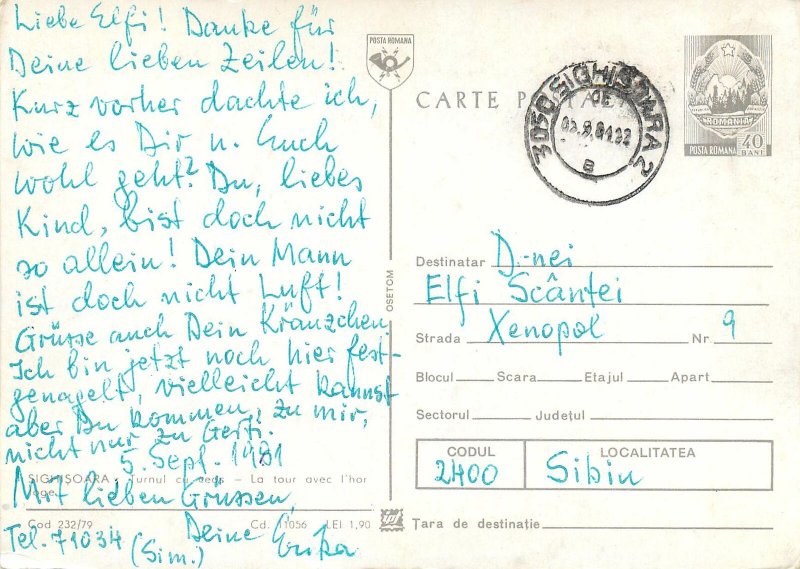 Liebe Elfi! Danke für
Deine lieben Zeilen!
Kurz vorher dachte ich,
wie es Dir u. Euch
wohl geht? Du, liebes
Kind, bist doch nicht
so allein! Dein Mann
ist doch nicht Luft!
Grüsse auch Dein Kränzchen
Ich bin jetzt noch hier fest-
genagelt, vielleicht kannst
aber Du kommen, zu mir,
nicht nur zu Gerti.
5. Sept. 1981
SIGHIȘOARA - Turnul cu ceas - La tour avec l'hor
loge
Mit lieben Grüssen,
Deine Erika
Cod 232/79 Cd. 11056 LEI 1,90
Tel. 71034
(Sim.)
OSETCM
POSTA ROMANA
CARTE POȘTALĂ
3050 SIGHISOARA 2
ROMANIA
POSTA ROMANA 40 BANI
Destinatar D-nei
Elfi Scântei
Strada Xenopol Nr. 9
Blocul Scara Etajul Apart
Sectorul Județul
CODUL 2400
LOCALITATEA Sibiu
Țara de destinație